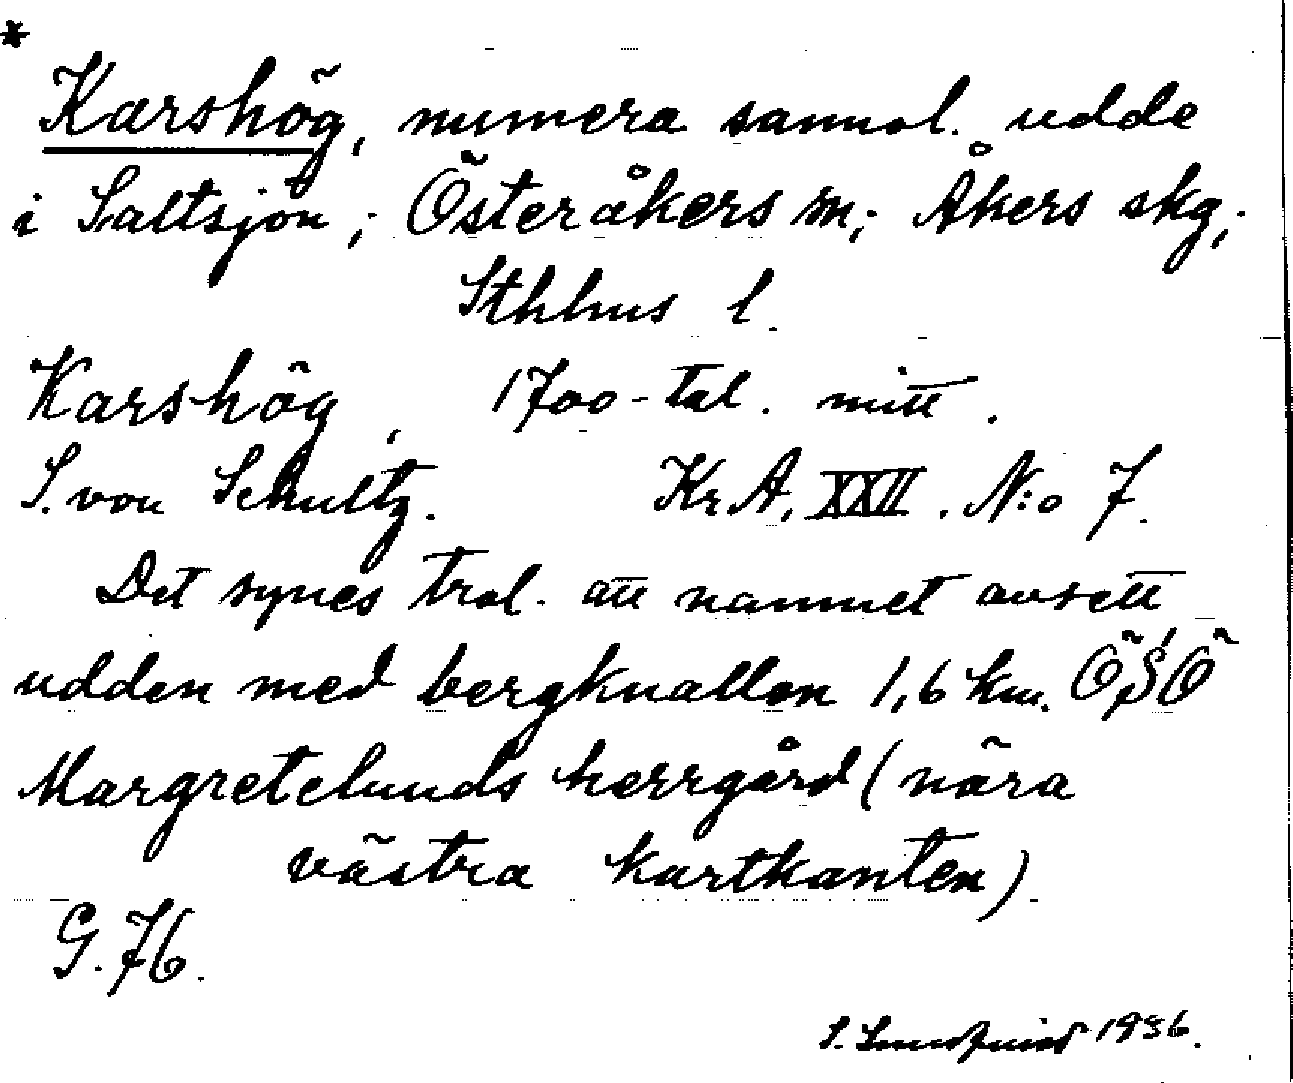 *
Karshög, numera sannol. udde
i Saltsjön; Österåkers sn; Åkers skg;
Sthlms l.
Karshög, 1700-tal. mitt.
S. von Schultz. Kr. A, XXII. N:o 7.
Det synes trol. att namnet avsett
udden med bergknallen 1,6 km. ÖSÖ
Margretelunds herrgård (nära
västra kartkanten)
G. 76.
S. 1936.